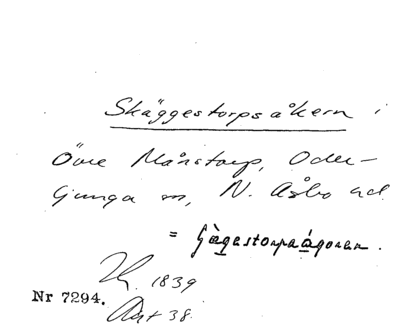 Skäggestorpsåkern i
Övre Månstorp, Oder-
ljunga sn, N. Åsbo hd.
= Gägestorpaágoren.
1839
Nr 7294. Akt 38.